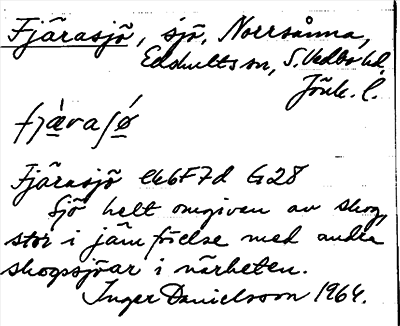 Fjärasjö, sjö, Norrsånna,
Edshults sn, S. Vedbo hd.
Jönk. l.
fjæ̀raʃǿ
Fjärasjö ek6F7d G28
Sjö helt omgiven av skog,
stor i jämförelse med andra
skogssjöar i närheten.
Inger Danielsson 1964.